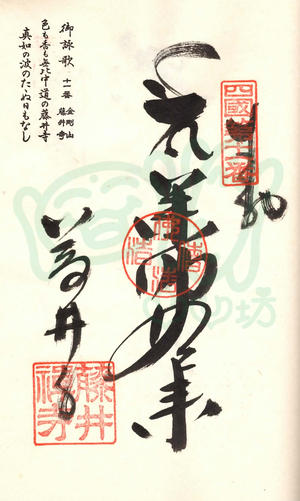 四國第十一番
奉納
薬師如来
藤井寺
藤井
禅寺
御詠歌 十一番 金剛山 藤井寺
色も香も無比中道の藤井寺
真如の波のたゝぬ日もなし